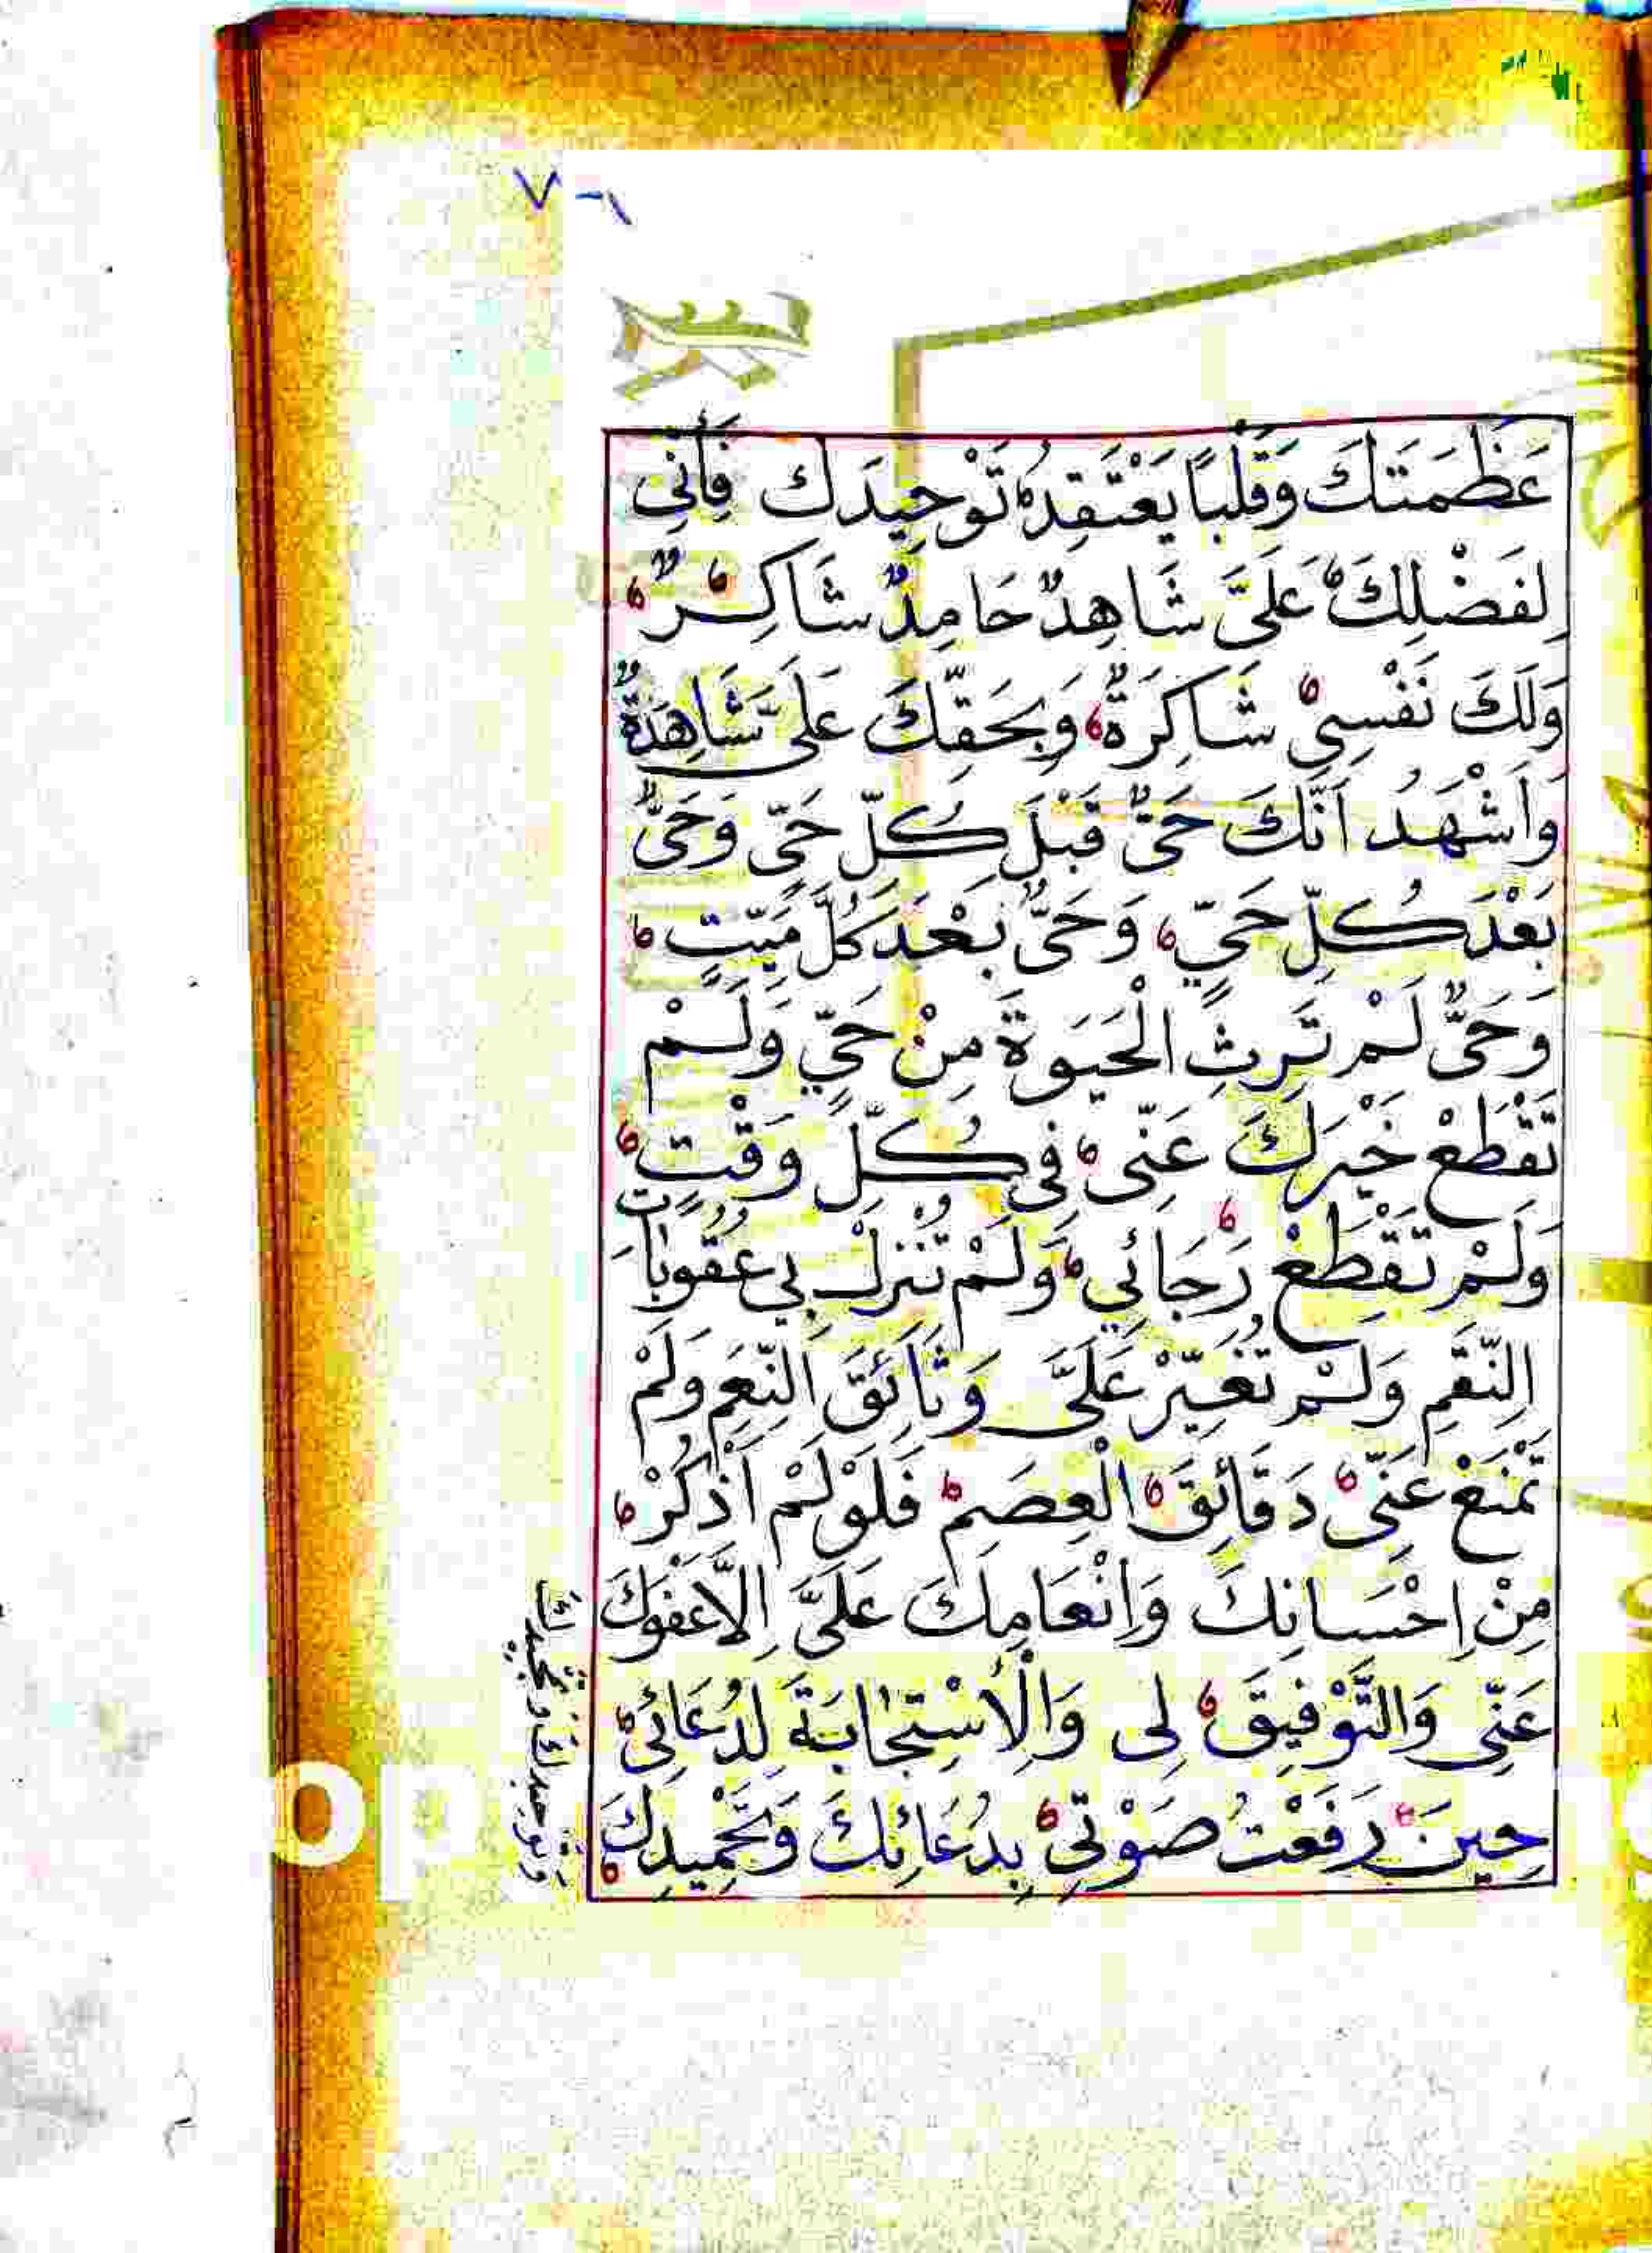 عَظَمَتَكَ وَقَلْبًا يَعْتَقِدُ تَوْحِيدَكَ فَاَنِّي
لِفَضْلِكَ عَلَيَّ شَاهِدٌ حَامِدٌ شَاكِرٌ
وَلَكَ نَفْسِيْ شَاكِرَةٌ وَبِحَقِّكَ عَلَيَّ شَاهِدَةٌ
وَاَشْهَدُ اَنَّكَ حَيٌّ قَبْلَ كُلِّ حَيٍّ وَحَيٌّ
بَعْدَ كُلِّ حَيٍّ وَحَيٌّ بَعْدَ كُلِّ مَيِّتٍ
وَحَيٌّ لَمْ تَرِثِ الْحَيَوةَ مِنْ حَيٍّ وَلَمْ
تَقْطَعْ خَيْرَكَ عَنِّى فِى كُلِّ وَقْتٍ
وَلَمْ تَقْطَعْ رَجَائِي وَلَمْ تُنْزِلْ بِي عُقُوبَاتِ
النِّقَمِ وَلَمْ تُغَيِّرْ عَلَيَّ وَثَائِقَ النِّعَمِ وَلَمْ
تَمْنَعْ عَنِّى دَقَائِقَ الْعِصَمِ فَلَوْ لَمْ اَذْكُرْ
مِنْ اِحْسَانِكَ وَاِنْعَامِكَ عَلَيَّ اِلَّا عَفْوَكَ
عَنِّى وَالتَّوْفِيقَ لِى وَالْاِسْتِجَابَةَ لِدُعَائِى
حِينَ رَفَعْتُ صَوْتِي بِدُعَائِكَ وَتَحْمِيدِكَ